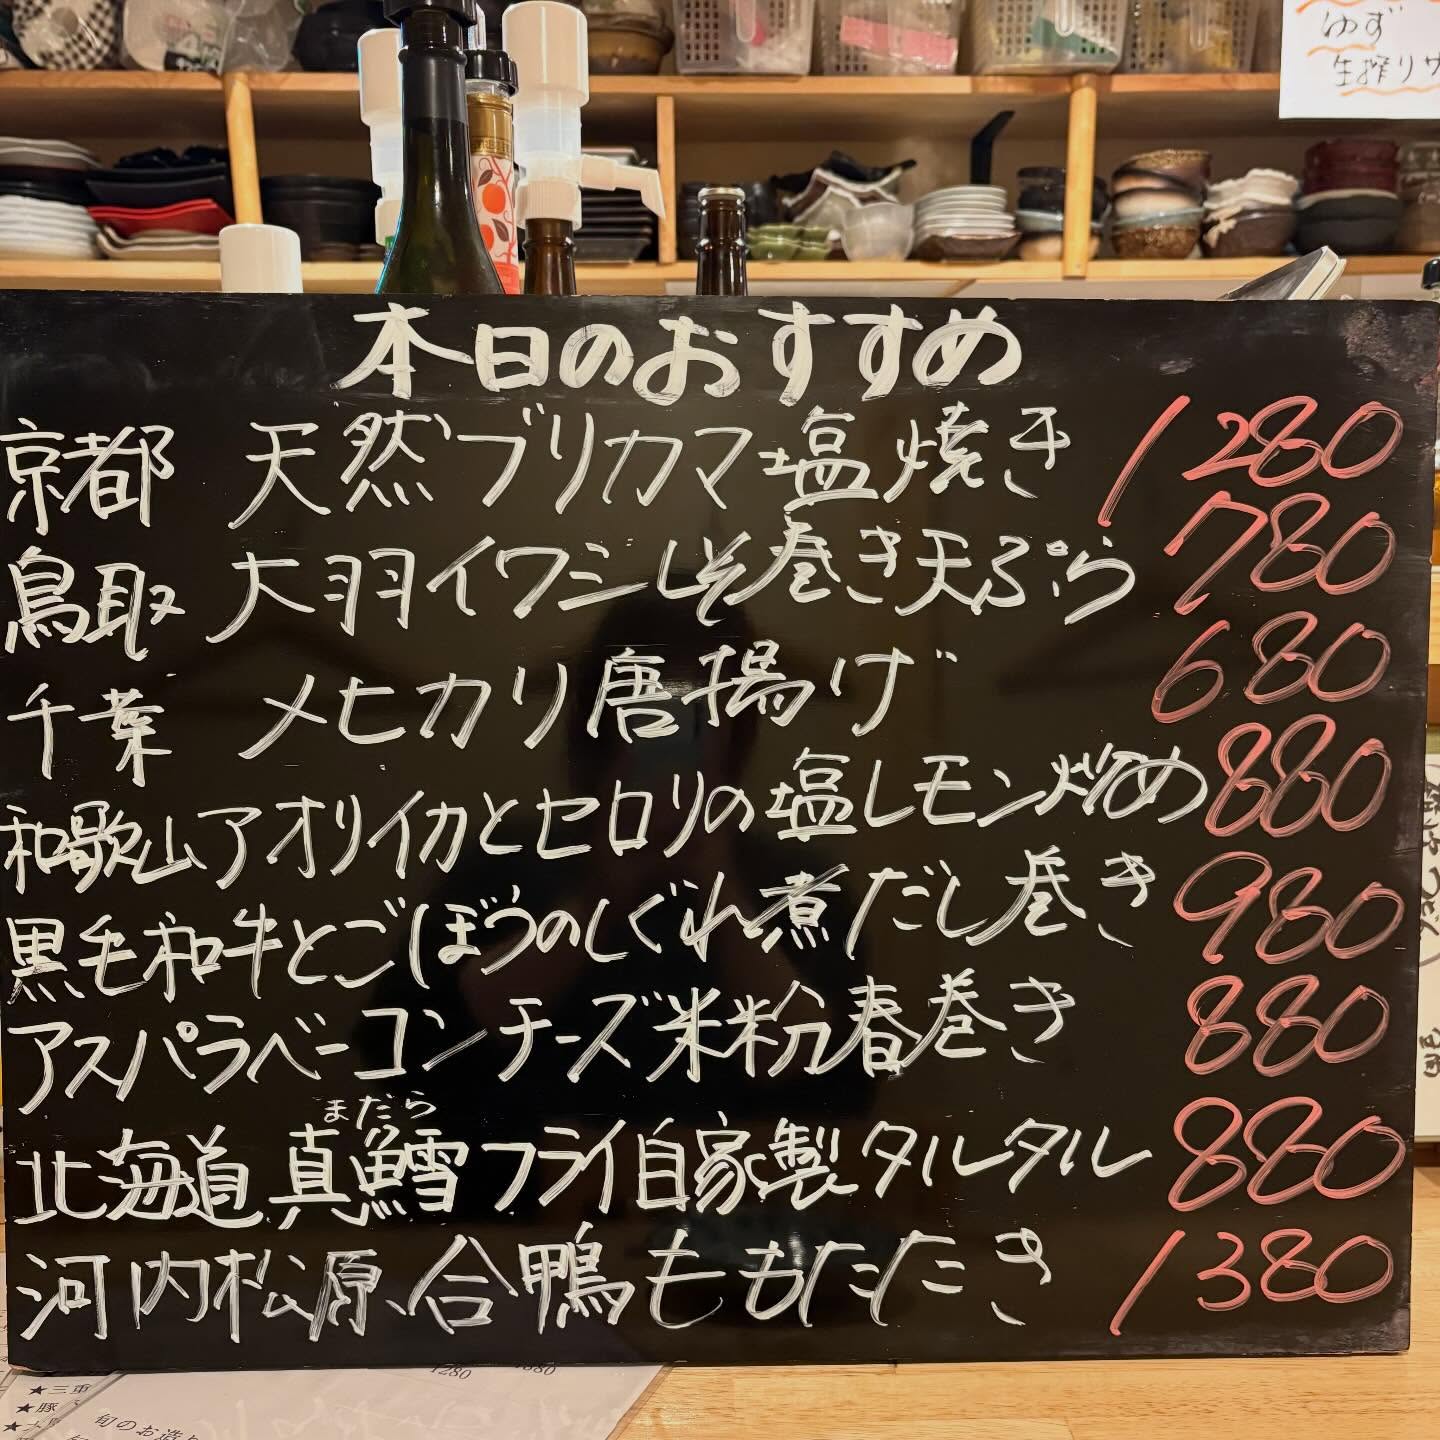 ゆず
生搾りサ
本日のおすすめ
京都 天然ブリカマ塩焼き 1280
鳥取 大羽イワシしそ巻き天ぷら 780
千葉 メヒカリ唐揚げ 680
和歌山アオリイカとセロリの塩レモン炒め 880
黒毛和牛とごぼうのしぐれ煮だし巻き 980
アスパラベーコンチーズ米粉春巻き 880
まだら
北海道 真鱈フライ自家製タルタル 880
河内松原、合鴨ももたたき 1380
1280
★三重
★豚
旬のお造り